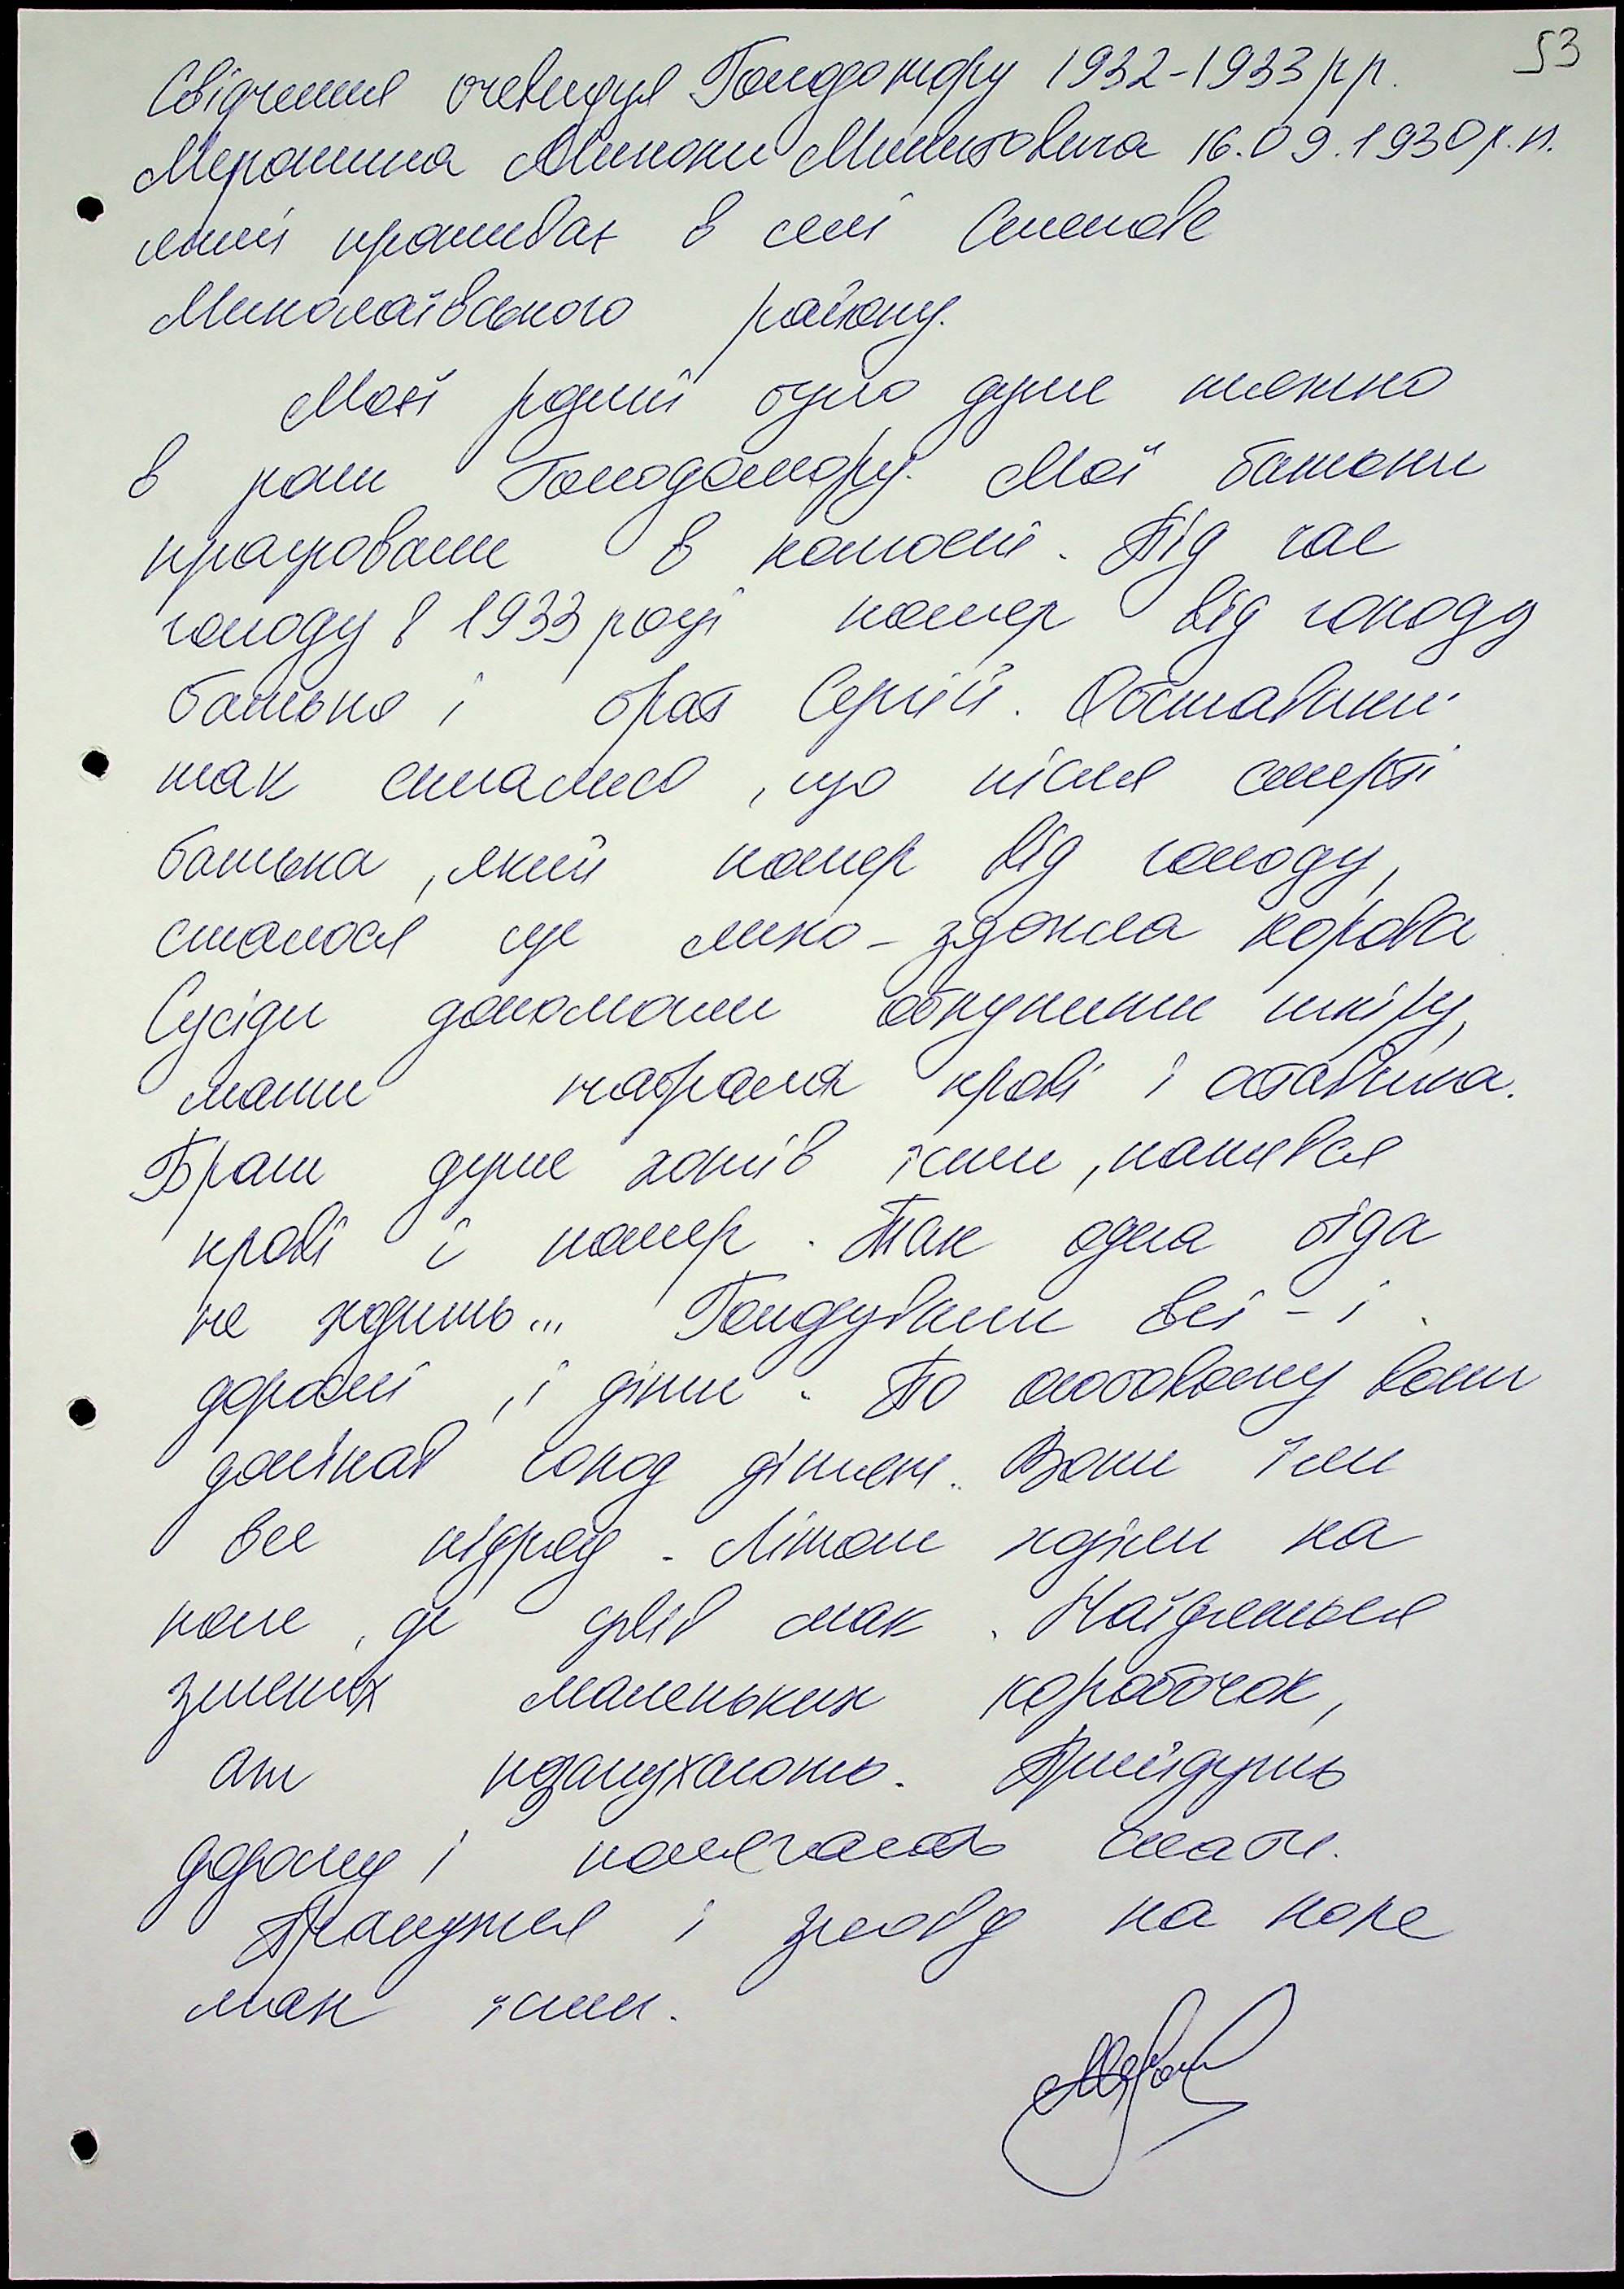 53
Свідчення очевидця Голодомору 1932-1933 рр.
Миколи Микитовича 16.09.1930 р.н.
який проживає в селі Степове
Миколаївського району.
Моїй родині було дуже тяжко
в роки Голодомору. Мої батьки
працювали в колгоспі. Під час
голоду в 1933 році помер від голоду
батько і брат Сергій. Обставини
так склалися, що після смерті
батька, який помер від голоду,
сталося ще лихо - здохла корова
Сусіди допомогли облупити шкіру,
мати набрала крові і оставила.
Брат дуже хотів їсти, напився
крові і помер. Так одна біда
не ходить... Голодували всі - і
дорослі, і діти. По особливому
голод дітей. Вони їли
все підряд. Літом ходили на
поле, де цвів мак. Наїдяться
зелених маленьких коробочок,
аж Прийдуть
додому і полягають спати.
Прокинуться і знову на поле
мак їсти.